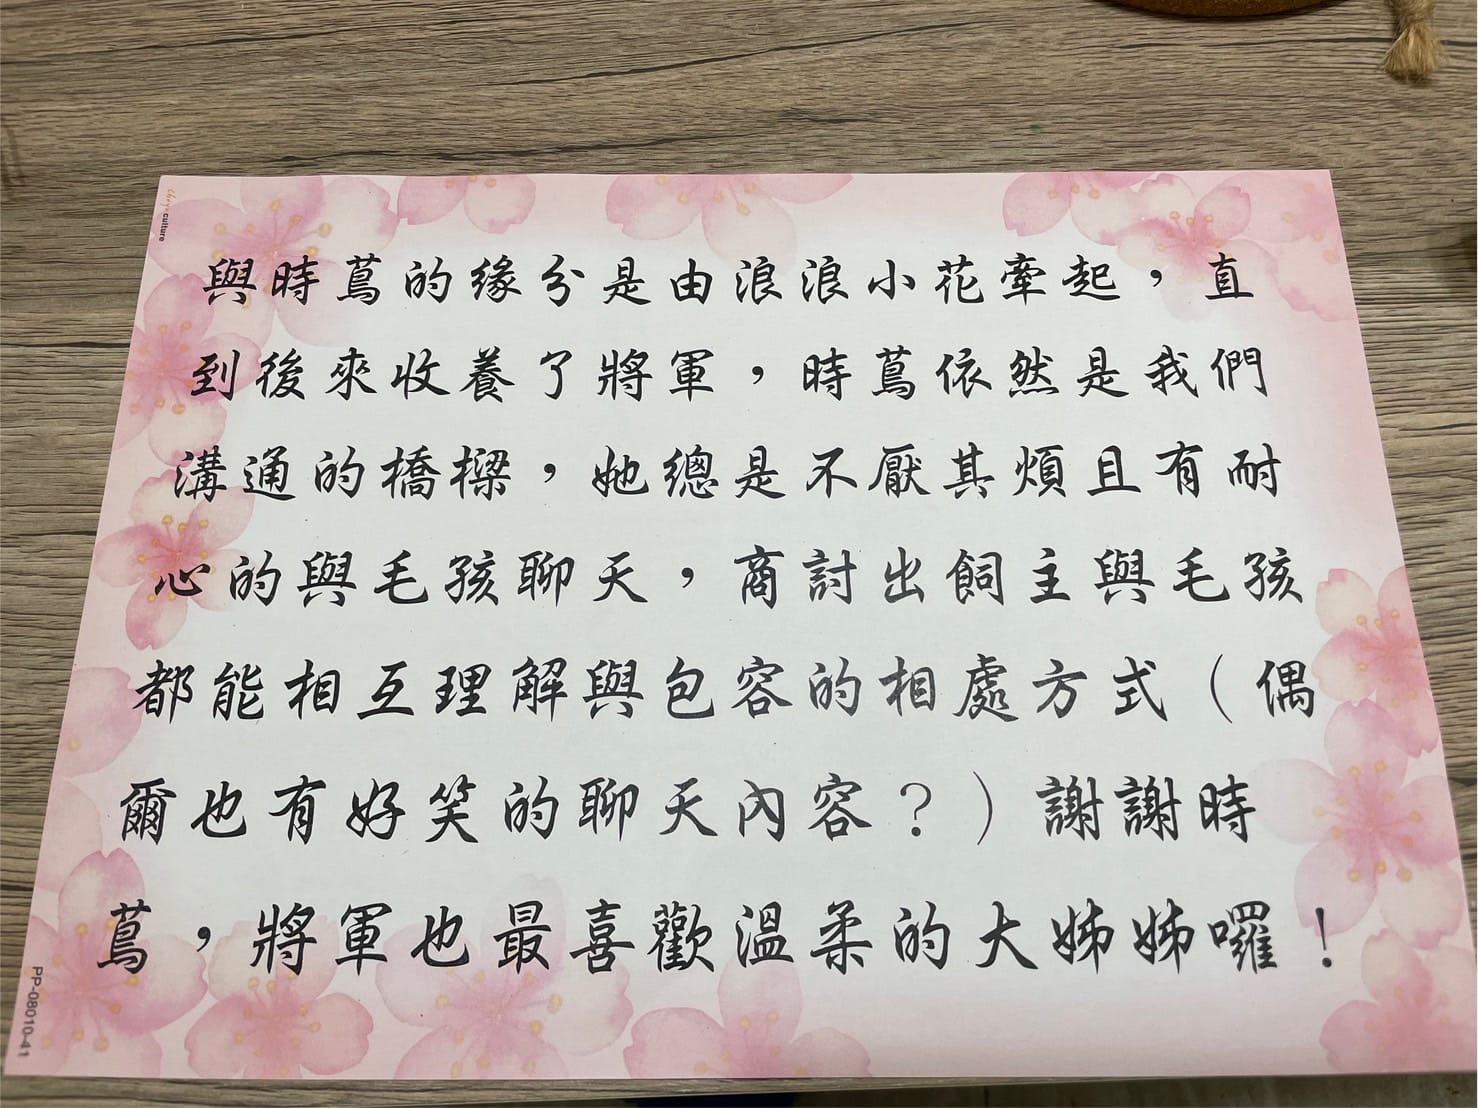 與時蔦的緣分是由浪浪小花牽起，直
到後來收養了將軍，時蔦依然是我們
溝通的橋樑，她總是不厭其煩且有耐
心的與毛孩聊天，商討出飼主與毛孩
都能相互理解與包容的相處方式（偶
爾也有好笑的聊天內容？）謝謝時
蔦，將軍也最喜歡溫柔的大姊姊囉！
culture
PP-08010-41